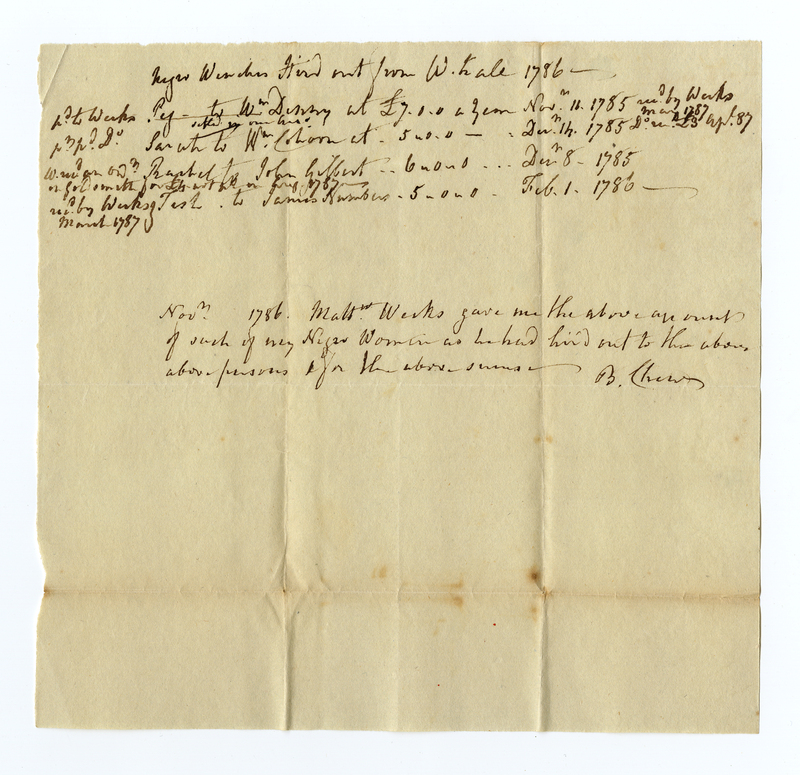 Negro Wenches Hir'd out from W. Hale 1786 —
pd to Weeks Peg — to Wm Destry at £7.0.0 a year Novr 11. 1785 recd by Weeks
settled in our acct March 1787
pr pd Do Sarah to Wm Cohoon at - 5.0.0 — . Decr 14. 1785 Do recd £3 Apl. 87
W. recd an ordr Rachel to John Gilbert .. 6.0.0 ... Decr 8 - 1785
on goldsmith for Augt 1787
recd by Weeks Tish . to James Numbers - 5.0.0 . Feb. 1. 1786 —
March 1787
Novr 1786. Matthw Weeks gave me the above account
of such of my Negro Women as he had hir'd out to the above
above persons & for the above sums —
B. Chew